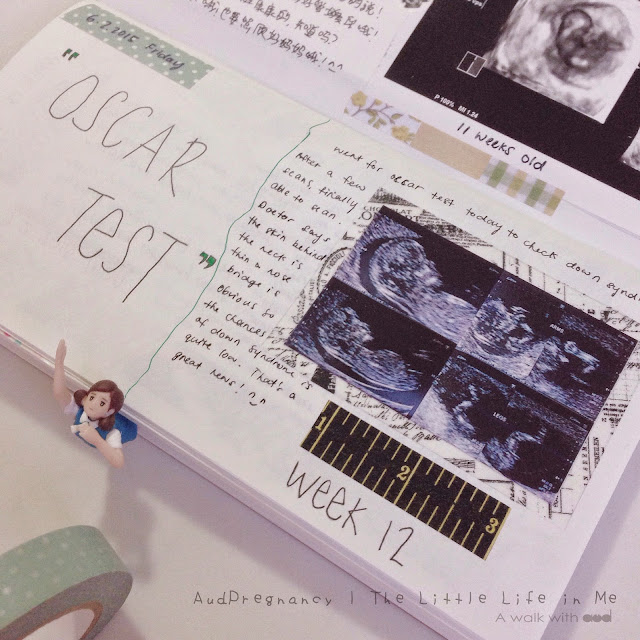 6.2.2015 Friday
"OSCAR
TEST"
P 100% MI 1.24
11 weeks old
went for oscar test today to check down
After a few
scans, finally
able to scan
Doctor say
the skin behind
the neck is
thin & nose
bridge is
obvious so
the chances
of down syndrome is
quite low. That's a
great news! ^^
1 2 3
Week 12
AudPregnancy | The Little Life in Me
A walk with aud